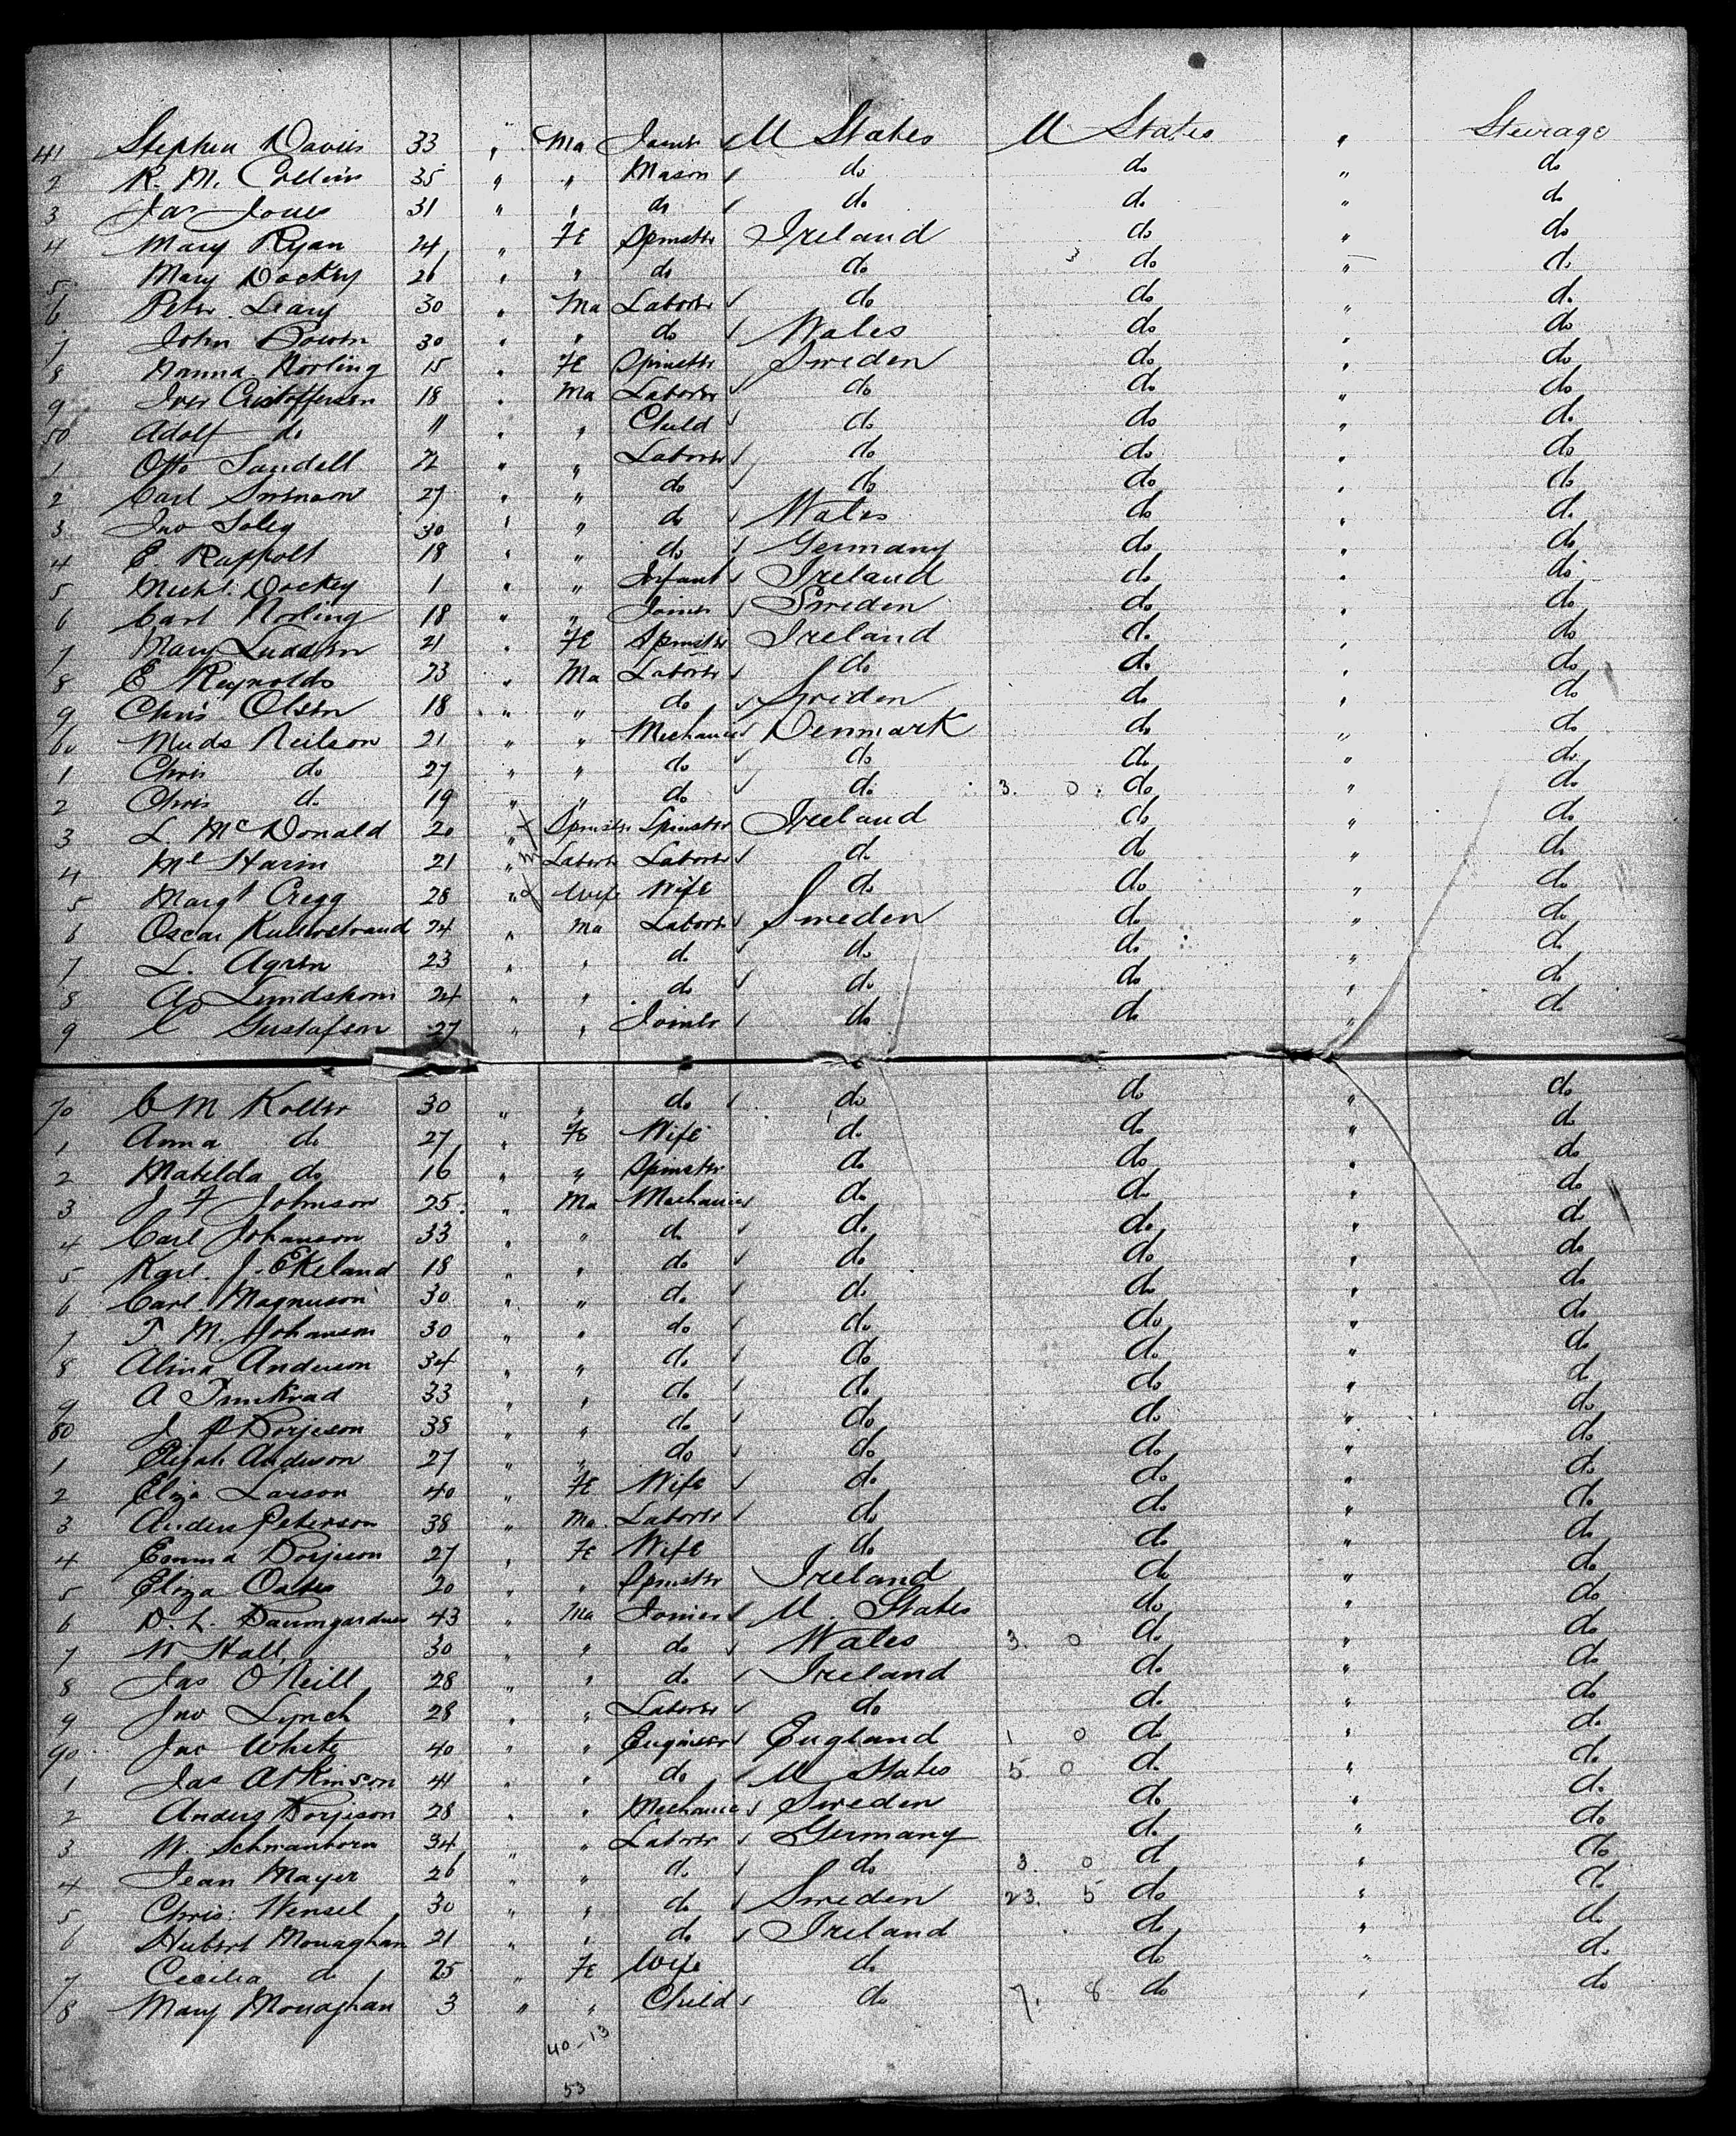 41 Stephen Davies 33 " Ma Joiner U States U States " Steerage
2 R. M. Collins 35 " " Mason do do " do
3 Jas Jones 31 " " do do do " do
4 Mary Ryan 24 " Fe Spinster Ireland do " do
5 Mary Dockey 26 " " do do 3 do " do
6 Peter Leary 30 " Ma Laborer do do " do
7 John Bowen 30 " " do Wales do " do
8 Nanna Norling 15 " Fe Spinster Sweden do " do
9 Iver Cristofferson 18 " Ma Laborer do do " do
50 Adolf do 11 " " Child do do " do
1 Otto Sandell 22 " " Laborer do do " do
2 Carl Swenson 27 " " do do do " do
3 Jno Soley 30 " " do Wales do " do
4 E. Rappolt 18 " " do Germany do " do
5 Michl. Dockey 1 " " Infant Ireland do " do
6 Carl Norling 18 " " Joiner Sweden do " do
7 Mary Ludden 21 " Fe Spinster Ireland do " do
8 E Reynolds 23 " Ma Laborer do do " do
9 Chris Olsen 18 " " do Sweden do " do
60 Muds Neilson 21 " " Mechanic Denmark do " do
1 Chris do 27 " " do do do " do
2 Chris do 19 " " do do 3. 0 do " do
3 L. McDonald 20 " Spinster Spinster Ireland do " do
4 Ml Harin 21 " m Laborer Laborer do do " do
5 Margt Cregg 28 " Wife Wife do do " do
6 Oscar 24 " Ma Laborer Sweden do " do
7 L. Agren 23 " " do do do " do
8 A Lundstrom 24 " " do do do " do
9 Gustafson 27 " " Joiner do do "	do
70 C M Koller 30 " " do do do " do
1 Anna do 27 " Fe Wife do do " do
2 Matilda do 16 " " Spinster do do " do
3 J F Johnson 25 " Ma Mechanic do do " do
4 Carl Johanson 33 " " do do do " do
5 Karl J. Ekeland 18 " " do do do " do
6 Carl Magnuson 30 " " do do do " do
7 T. M. Johanson 30 " " do do do " do
8 Alma Anderson 34 " " do do do " do
9 A 33 " " do do do " do
80 J P Borjeson 38 " " do do do " do
1 Elijah Anderson 27 " " do do do " do
2 Eliza Larson 40 " Fe Wife do do " do
3 Anders Peterson 38 " Ma Laborer do do " do
4 Emma Borjeson 27 " Fe Wife do do " do
5 Eliza Oates 20 " " Spinster Ireland do " do
6 D. L. Baumgardner 43 " Ma Joiner U. States do " do
7 W Hall 30 " " do Wales 3. 0 do " do
8 Jas O'Neill 28 " " do Ireland do " do
9 Jno Lynch 28 " " Laborer do do " do
90 Jas White 40 " " Engineer England 1 0 do " do
1 Jas Atkinson 41 " " do U States 5 0 do " do
2 Anders Borjeson 28 " " Mechanic Sweden do " do
3 W. Schwanborn 34 " " Laborer Germany do " do
4 Jean Mayer 26 " " do do 3. 0 do " do
5 Chris. Wensel 30 " " do Sweden 23. 5 do " do
6 Hubert Monaghan 21 " " do Ireland do " do
7 Cecilia do 25 " Fe Wife do do " do
8 Mary Monaghan 3 " " Child do 7. 8 do " do
40-13
53